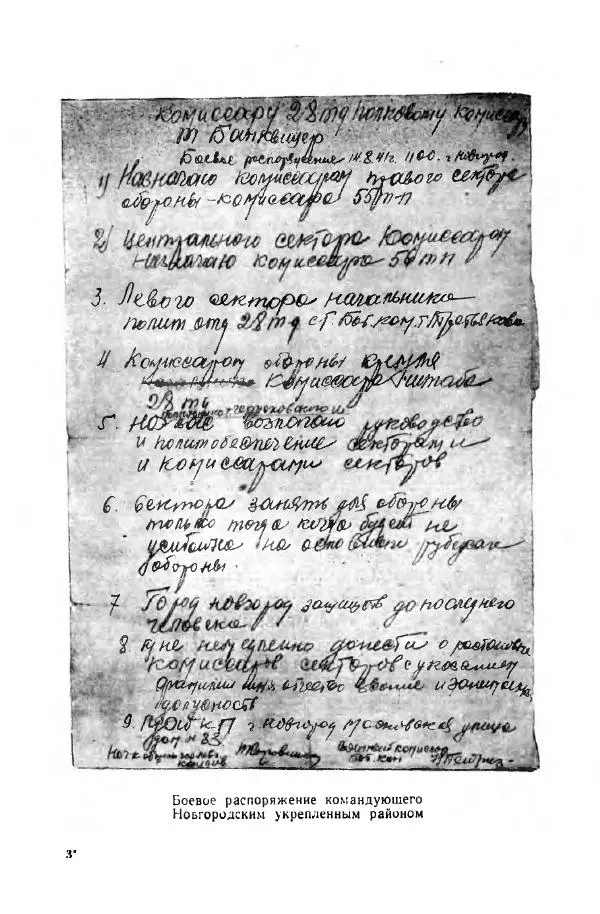 Комиссару 28 тд полковому комиссару
т Банквицер
Боевое распоряжение 14.8.41г. 11 00. г Новгород
1) Назначаю комиссаром правого сектора
обороны - комиссара 55 тп
2) Центрального сектора Комиссаром
назначаю комиссара 56 тп
3. Левого сектора начальника
полит отд 28 тд ст. бат. ком. т Третьякова
4 Комиссаром обороны кремля
комиссара штаба
28 тд
5. На Вас возлагаю руководство
и политобеспечение секторами
и комиссарами секторов
6. Сектора занять для обороны
только тогда когда будет не
на рубежах
обороны.
7 Город Новгород защищать до последнего
человека
8. Мне немедленно донести о расстановке
комиссаров секторов с указанием
фамилии имя отчество звание и занимаемая
должность
9. Мой КП г. Новгород Московская улица
дом № 83.
Военный комиссар
бат. ком
Боевое распоряжение командующего
Новгородским укрепленным районом
3*